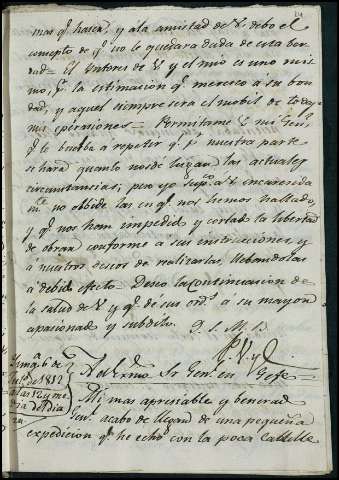 mas qᵉ hasca, y á la amistad de V. debo el
concepto de qᵉ no le quedara duda de esta ber
dad= El Ynteres de V. y el mio es uno mis
mo, pʳ la estimacion qᵉ merezco á su bon
dad, y aquel siempre será el mobil de todas
mis operaciones= Permitame V. mi Genˡ
qᵉ le buelba a repetir qᵉ pʳ nuestra parte
se hará quanto nos dé lugar las actuales
circunstancias; pero yo supᶜᵒ a V. encarecida
mᵗᵉ no olbide las en qᵉ nos hemos hallado,
y qᵉ nos han impedido y cortado la libertad
de obrar conforme a sus instrucciones, y
á nuestros deseos de realizarlas, llebandolas
á debido efecto. Deseo la continuacion de
la salud de V. y qᵉ dé sus ordˢ á su mayor
apacionado y subdito. Q. S. M. B.
Al Exmo Sr Genˡ en Gefe
Mi mas apreciable y benerado
Genˡ acabo de llegar de una pequeña
expedicion qᵉ he echo con la poca Caballe
6 de
de 1812
a las 12 y me
dia del dia